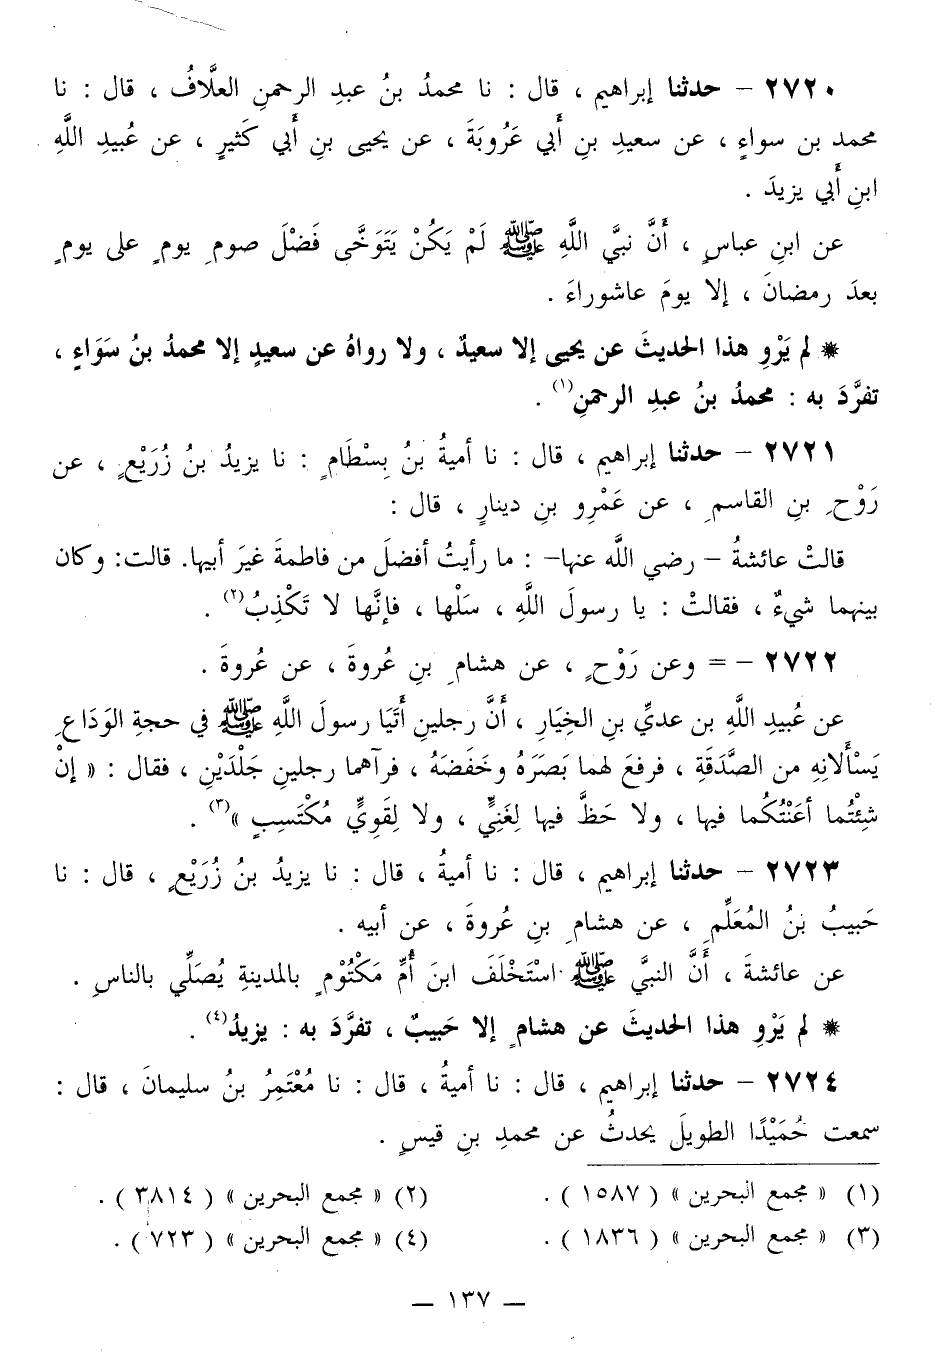 ٢٧٢٠ – حدثنا إبراهيم ، قال : نا محمدُ بنُ عبدِ الرحمنِ العلَّافُ ، قال : نا
محمد بن سواءٍ ، عن سعيدِ بنِ أَبي عَرُوبَةَ ، عن يحيى بنِ أَبي كَثيرٍ ، عن عُبيدِ اللَّهِ
ابنِ أَبي يزيدَ .
عن ابنِ عباسٍ ، أَنَّ نبيَّ اللَّهِ ﷺ لَمْ يَكُنْ يَتَوَخَّى فَضْلَ صومِ يومٍ على يومٍ
بعدَ رمضانَ ، إلا يومَ عاشوراءَ .
* لم يَرْوِ هذا الحديثَ عن يحيى إلا سعيدٌ ، ولا رواهُ عن سعيدٍ إلا محمدُ بنُ سَوَاءٍ ،
تفرَّدَ به : محمدُ بنُ عبدِ الرحمنِ(١) .
٢٧٢١ – حدثنا إبراهيم ، قال : نا أميةُ بنُ بِسْطَامٍ : نا يزيدُ بنُ زُرَيْعٍ ، عن
رَوْحِ بنِ القاسمِ ، عن عَمْرِو بنِ دينارٍ ، قال :
قالتْ عائشةُ – رضي اللَّه عنها– : ما رأيتُ أفضلَ من فاطمةَ غيرَ أبيها. قالت: وكان
بينهما شيءٌ ، فقالتْ : يا رسولَ اللَّهِ ، سَلْها ، فإنَّها لا تَكْذِبُ(٢) .
٢٧٢٢ – = وعن رَوْحٍ ، عن هشامِ بنِ عُروةَ ، عن عُروةَ .
عن عُبيدِ اللَّهِ بن عديِّ بنِ الخِيَارِ ، أَنَّ رجلينِ أَتَيَا رسولَ اللَّهِ ﷺ في حجةِ الوَدَاعِ
يَسْأَلانِهِ من الصَّدَقَةِ ، فرفعَ لهما بَصَرَهُ وخَفَضَهُ ، فرآهما رجلينِ جَلْدَيْنِ ، فقال : « إنْ
شِئْتُما أعَنْتُكُما فيها ، ولا حَظَّ فيها لِغَنِيٍّ ، ولا لِقَوِيٍّ مُكْتَسِبٍ »(٣) .
٢٧٢٣ – حدثنا إبراهيم ، قال : نا أميةُ ، قال : نا يزيدُ بنُ زُرَيْعٍ ، قال : نا
حَبيبُ بنُ المُعَلِّمِ ، عن هشامِ بنِ عُروةَ ، عن أبيه .
عن عائشةَ ، أَنَّ النبيَّ ﷺ اسْتَخْلَفَ ابنَ أُمِّ مَكْتُوْمٍ بالمدينةِ يُصَلِّي بالناسِ .
* لم يَرْوِ هذا الحديثَ عن هشامٍ إلا حَبيبٌ ، تفرَّدَ به : يزيدُ(٤) .
٢٧٢٤ – حدثنا إبراهيم ، قال : نا أميةُ ، قال : نا مُعْتَمِرُ بنُ سليمانَ ، قال :
سمعت حُمَيْدًا الطويلَ يحدثُ عن محمدِ بنِ قيسٍ .
(١) « مجمع البحرين » ( ١٥٨٧ ) . (٢) « مجمع البحرين » ( ٣٨١٤ ) .
(٣) « مجمع البحرين » ( ١٨٣٦ ) . (٤) « مجمع البحرين » ( ٧٢٣ ) .
— ١٣٧ —